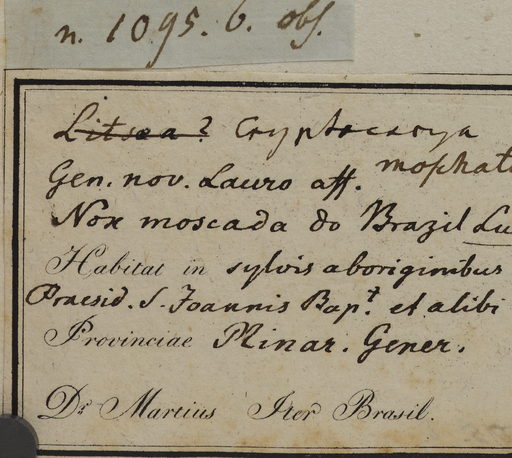 n. 1095. b. obs.
Litsea? Cryptocarya
moschat
Gen. nov. Lauro aff.
Nox moscada do Brazil Lu
Habitat in sylvis aboriginibus
Praesid. S. Joannis Bapt. et alibi
Provinciae Minar. Gener.
Dr. Martius Iter Brasil.